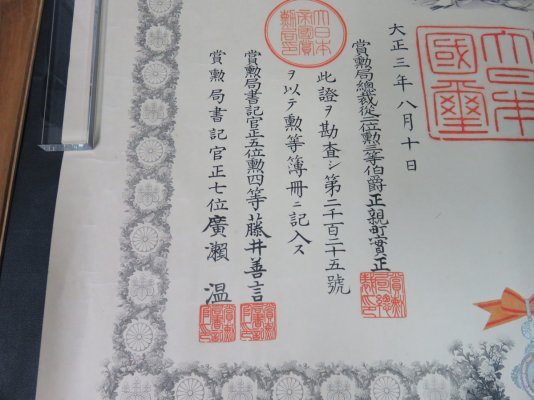 大正三年八月十日
大日本國璽
賞勲局總裁從二位勲三等伯爵正親町實正
此證ヲ勘査シ第二千百二十五號
ヲ以テ勲等簿冊ニ記入ス
賞勲局書記官正五位勲四等藤井善言
賞勲局書記官正七位廣瀨溫